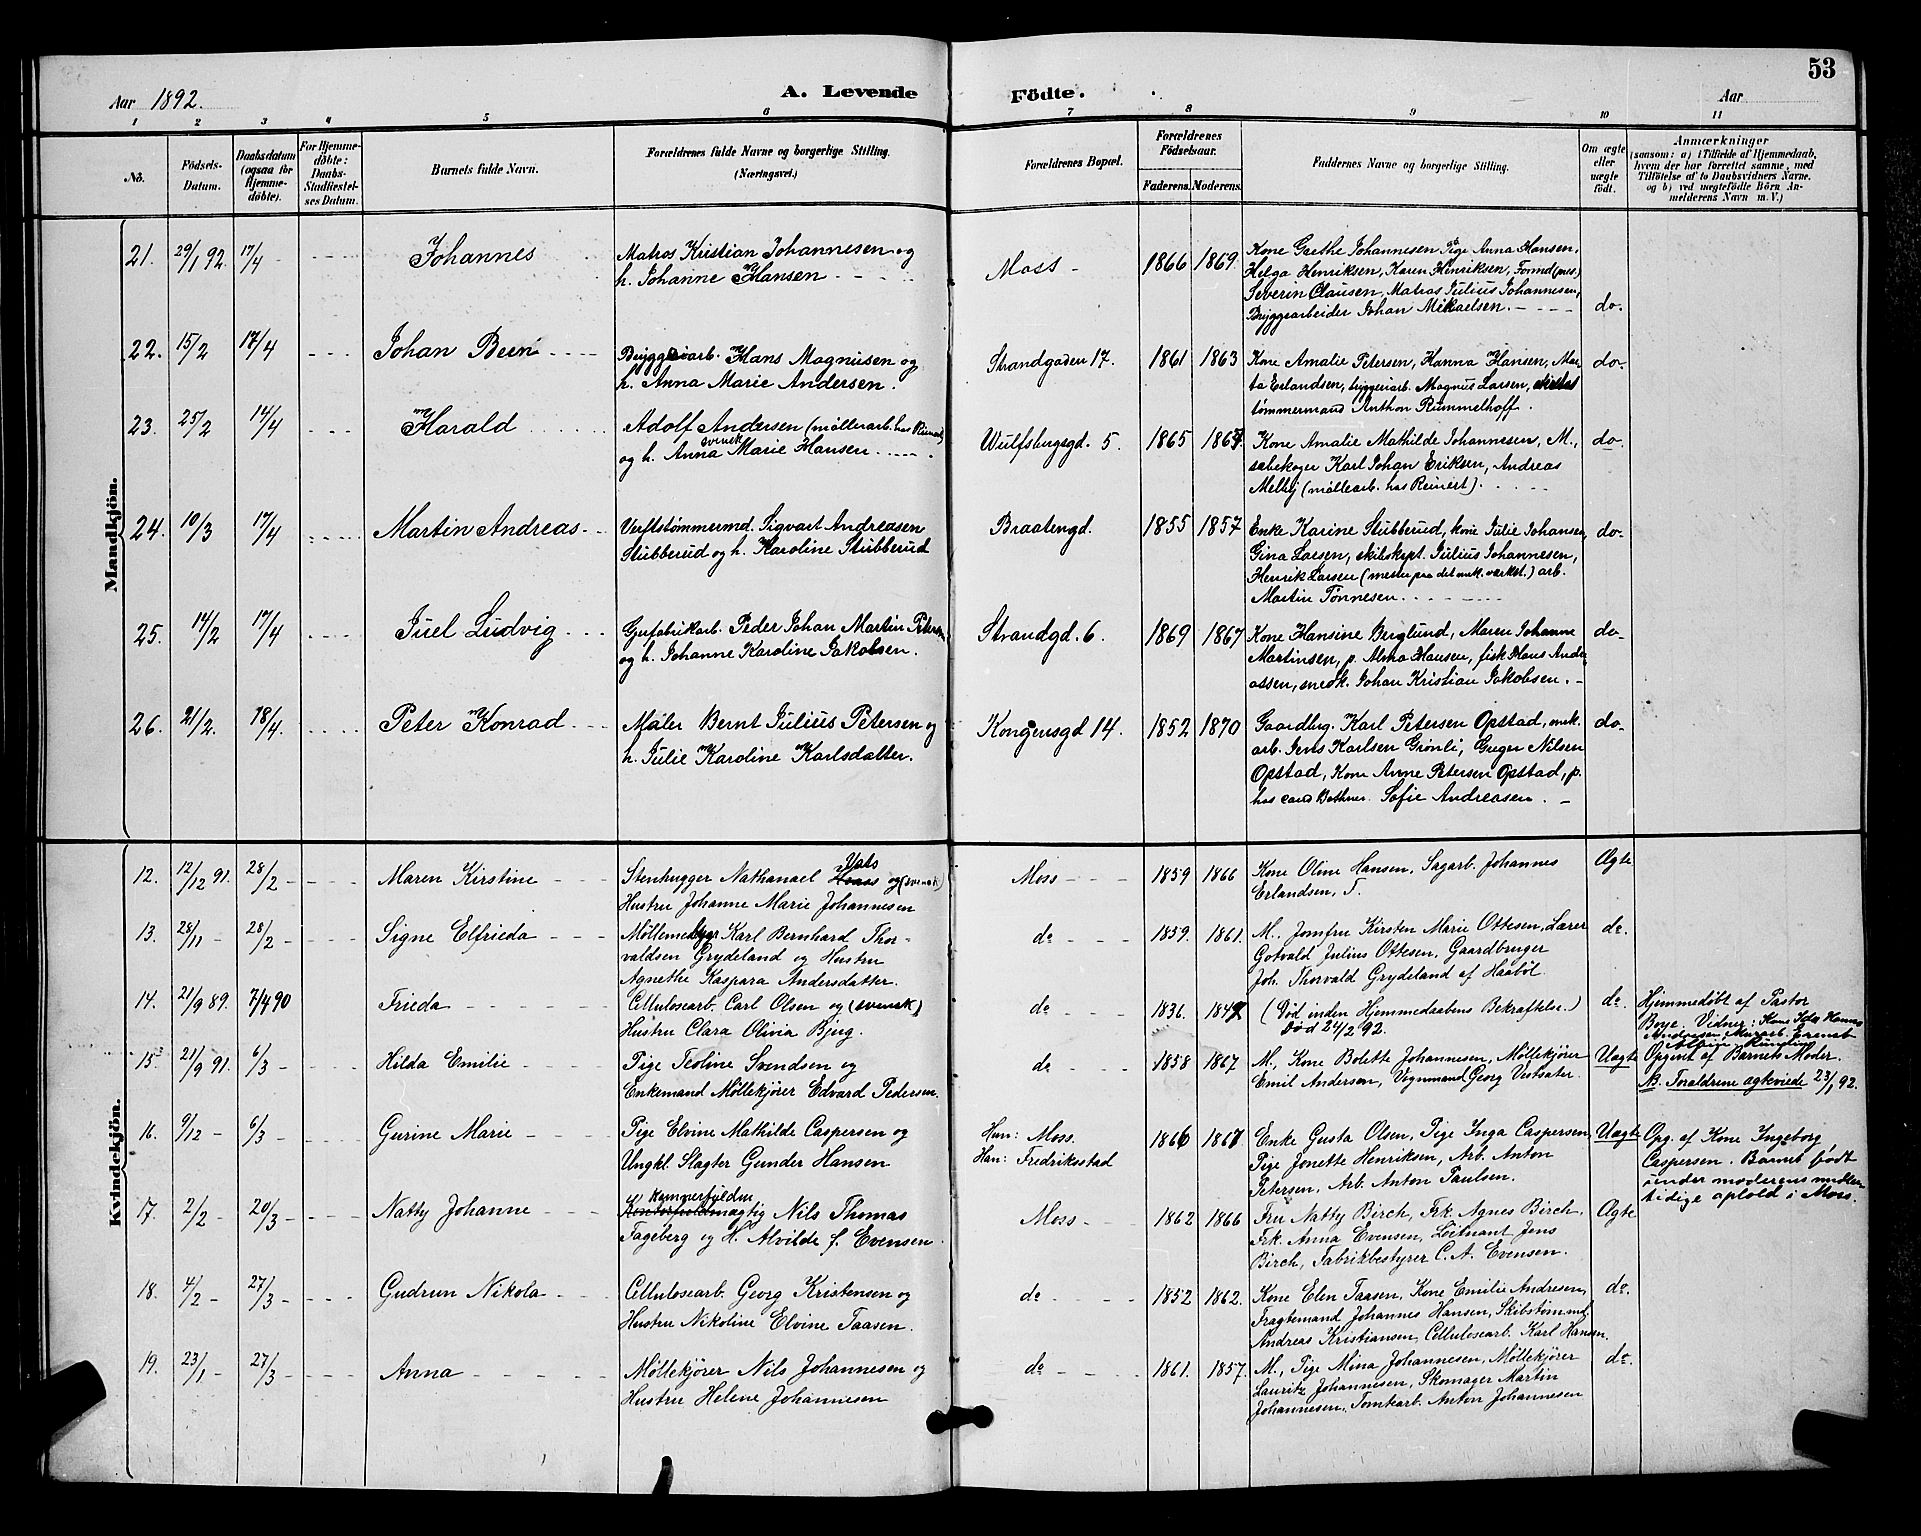 53
Aar 1892.
A. Levende Födte.
Aar
1 2 3 4 5 6 7 8 9 10 11
No.
Födsels-
Datum.
Daabsdatum
(ogsaa for
Hjemme-
døbte).
For Hjemme-
døbte:
Daabs-
Stadfæstel-
ses Datum.
Barnets fulde Navn.
Forældrenes fulde Navne og borgerlige Stilling.
(Næringsvei.)
Forældrenes Bopæl.
Forældrenes
Födselsaar.
Faderens. Moderens.
Faddernes Navne og borgerlige Stilling.
Om ægte
eller
uægte
født.
Anmærkninger
(saasom: a) i Tilfælde af Hjemmedaab,
hvem der har forrettet samme, med
Tilføielse af to Daabsvidners Navne,
og b) ved uægtefødte Börn An-
melderens Navn m. V.)
Mandkjön.
21. 29/1 92. 17/4 Johannes
Matros Kristian Johannesen og
h. Johanne Hansen
Moss 1866 1869
Kone Grethe Johannesen Pige Anna Hansen,
Helga Henriksen, Karen Henriksen,
Severin Clausen, Matros Julius Johannesen,
Bryggearbeider Johan Mikaelsen. do.
22. 15/2 17/4 Johan Been
Bryggeriarb. Hans Magnusen og
h. Anna Marie Andersen.
Strandgaden 17. 1861 1863
Kone Amalie Petersen, Hanna Hansen, Mar-
ta Erlandsen, bryggeriarb. Magnus Larsen,
tømmermand Anthon Rummelhoff. do
23. 25/2 14/4 Harald
Adolf Andersen (møllearb. hos Reinert)
svensk
og h. Anna Marie Hansen
Wulfsbergsgd. 5. 1865
Kone Amalie Mathilde Johannesen, M.,
sæbekoger Karl Johan Eriksen, Andreas
Melby (møllearb. hos Reinert). do
24. 10/3 17/4 Martin Andreas
Verftstømmermd. Sigvart Andreasen
Stubberud og h. Karoline Stubberud
Braatengd. 1855 1857
Enke Karine Stubberud, kone Julie Johansen,
Gina Larsen, skibskpt. Julius Johannesen,
Henrik Larsen (mester paa det mek. værkst.) arb.
Martin Tønnesen. do
25. 14/2 17/4 Juel Ludvig
Gjærfabrikarb. Peder Johan Martin Petersen
og h. Johanne Karoline Jakobsen.
Strandgd. 6. 1869 1867
Kone Hansine Berglund, Maren Johanne
Martinsen, p. Alma Hansen, fisk Hans Andre-
assen, snedk. Johan Kristian Jakobsen. do
26. 21/2. 18/4. Peter Konrad
Maler Bernt Julius Petersen og
h. Julie Karoline Karlsdatter.
Kongensgd 14. 1852 1870
Gaardbrg. Karl Petersen Opstad, mek.
arb. Jens Karlsen Grønli, Gregers Nilsen
Opstad, Kone Anne Petersen Opstad, p.
hos cand Bethner. Sofie Andreasen. do
Kvindekjön.
12. 12/12 91. 28/2 Maren Kirstine
Vats
Stenhugger Nathanael og (svensk)
Hustru Johanne Marie Johannesen
Moss 1859 1866
Kone Oline Hansen, Sagarb. Johannes
Erlandsen, F. Ægte
13. 28/11 28/2 Signe Elfrieda
Møllemedbygger Karl Bernhard Thor-
valdsen Grydeland og Hustru
Agnethe Kaspara Andersdatter.
do 1859. 1861.
M., Jomfru Kirsten Marie Ottesen, Lærer
Gotvald Julius Ottesen, Gaardbruger
Joh. Thorvald Grydeland af Haabøl. do.
14. 21/9 89. 7/4 90 Frieda
Cellulosearb. Carl Olsen og (svensk)
Hustru Clara Olivia Bjerg.
do 1836.
(Død inden Hjemmedaabens Bekræftelse.)
død 24/2 92. do.
Hjemmedøbt af Pastor
Boye. Vidner: Kone Ida Hansen
15. 21/9 91. 6/3 Hilda Emilie
Pige Teoline Svendsen og
Enkemand Møllekjører Edvard Pedersen.
do 1858 1867
M., Kone Bolette Johannesen, Møllekjører
Emil Andersen, Vognmand Georg Vestsæter. Uægte
Opgivet af Barnets Moder.
NB. Forældrene ægteviede 23/1 92.
16. 9/12 6/3 Gurine Marie
Pige Elvine Mathilde Caspersen og
Ungkl. Slagter Gunder Hansen
Hun: Moss.
Han: Fredriksstad
1866 1867
Enke Gusta Olsen, Pige Inga Caspersen,
Pige Jonette Henriksen, Arb. Anton
Petersen, Arb. Anton Paulsen. Uægte
Opg. af Kone Ingeborg
Caspersen. Barnet født
under moderens midler-
tidige ophold i Moss.
17. 2/2 20/3 Natty Johanne
Kontorfuldmægtig Nils Thomas
Fageberg og H. Alvilde f. Evensen.
Moss 1862 1866
Fru Natty Birch, Frk. Agnes Birch,
Frk. Anna Evensen, Løitnant Jens
Birch, Fabrikbestyrer C. A. Evensen. Ægte
18. 4/2 27/3 Gudrun Nikola
Cellulosearb. Georg Kristensen og
Hustru Nikoline Elvine Taasen.
do 1852 1862.
Kone Elen Taasen, Kone Emilie Andresen,
Fragtemand Johannes Hansen, Skibstømmd.
Andreas Kristiansen, Cellulosearb. Karl Hansen. do.
19. 23/1 27/3 Anna
Møllekjører Nils Johannesen og
Hustru Helene Johannesen
do 1861. 1857.
M., Pige Mina Johannesen, Møllekjører
Lauritz Johannesen, Skomager Martin
Johannesen, Tomtearb. Anton Johannesen do.